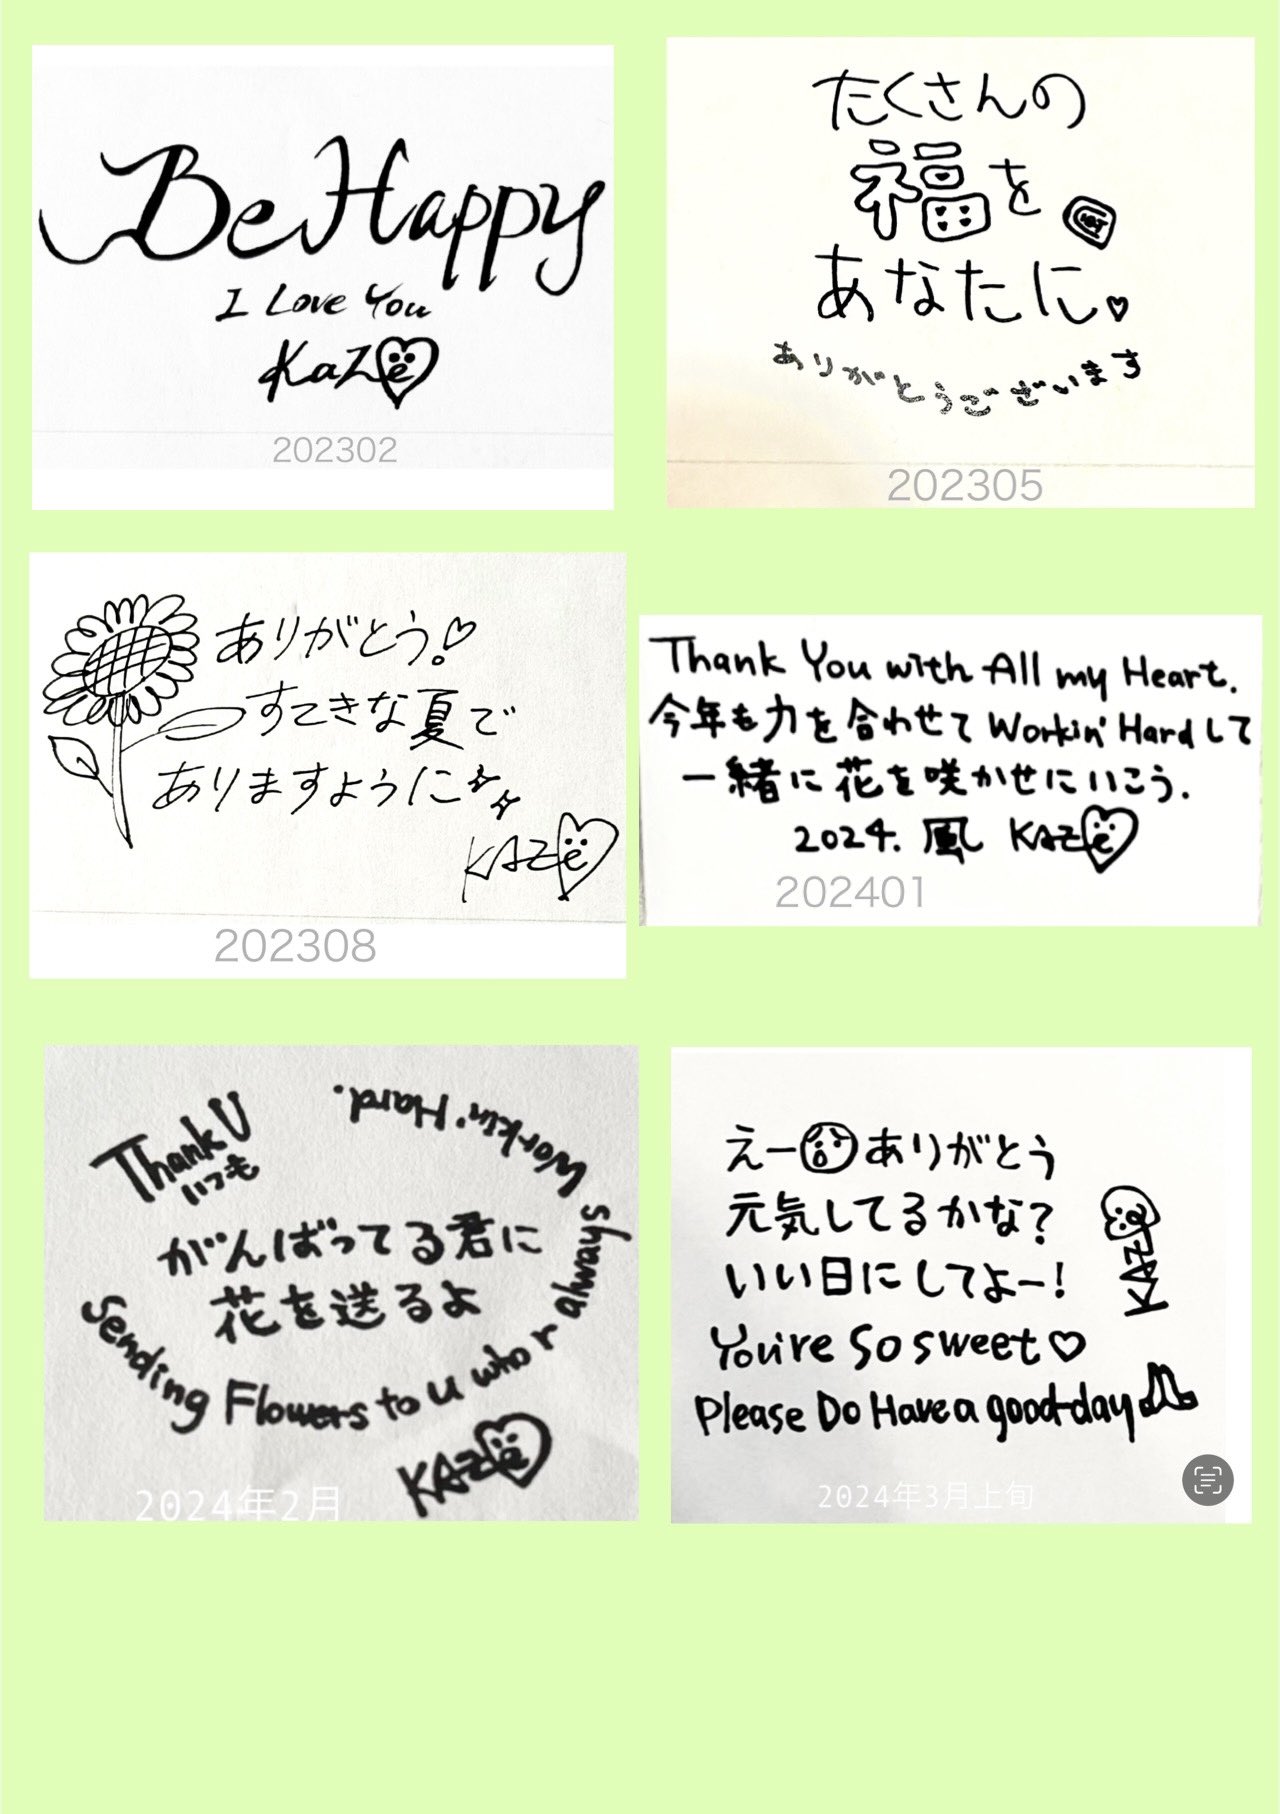 Be Happy
I Love You
KaZe
202302
たくさんの
福を
あなたに
ありがとうございます
202305
ありがとう!
すてきな夏で
ありますように
KAZe
202308
Thank You with All my Heart.
今年も力を合わせて Workin' Hard して
一緒に花を咲かせにいこう.
2024. 風 KAZe
202401
Thank U
いつも
がんばってる君に
花を送るよ
Sending Flowers to u who r always Workin' Hard.
KAZe
2024年2月
えーありがとう
元気してるかな?
いい日にしてよー!
You're So sweet
Please Do Have a good day
KAZe
2024年3月上旬